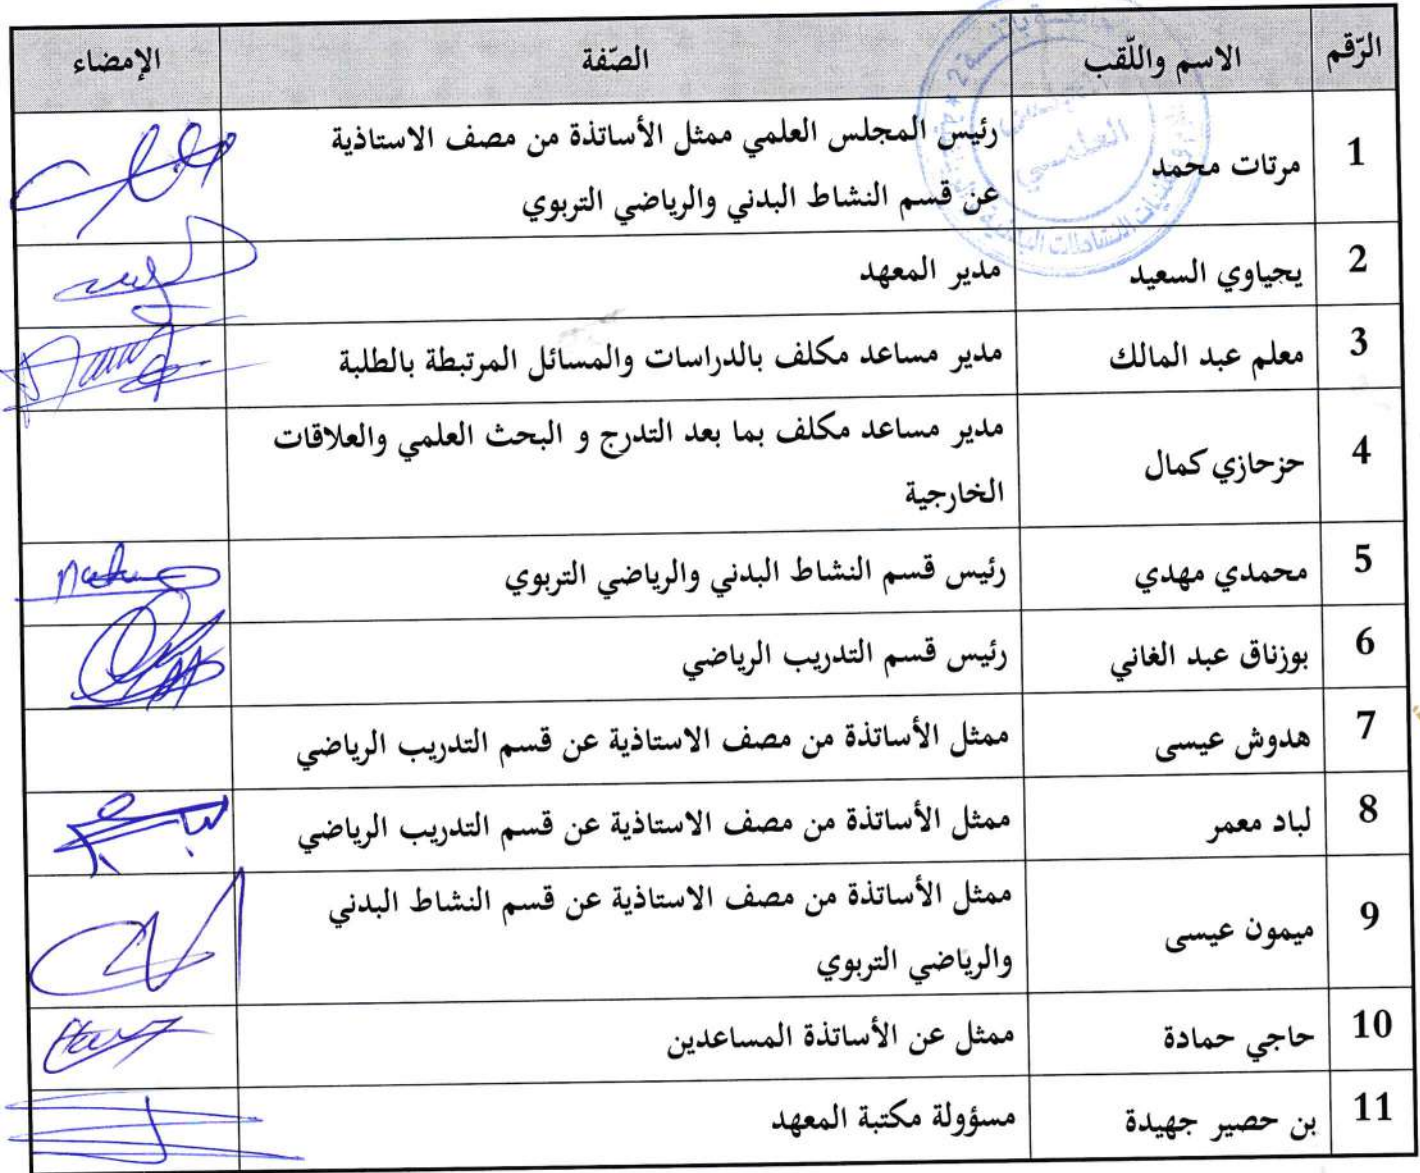 الرّقم الاسم واللّقب الصّفة الإمضاء
1 مرتات محمد رئيس المجلس العلمي ممثل الأساتذة من مصف الاستاذية
عن قسم النشاط البدني والرياضي التربوي
2 يحياوي السعيد مدير المعهد
3 معلم عبد المالك مدير مساعد مكلف بالدراسات والمسائل المرتبطة بالطلبة
4 حزحازي كمال مدير مساعد مكلف بما بعد التدرج و البحث العلمي والعلاقات
الخارجية
5 محمدي مهدي رئيس قسم النشاط البدني والرياضي التربوي
6 بوزناق عبد الغاني رئيس قسم التدريب الرياضي
7 هدوش عيسى ممثل الأساتذة من مصف الاستاذية عن قسم التدريب الرياضي
8 لباد معمر ممثل الأساتذة من مصف الاستاذية عن قسم التدريب الرياضي
9 ميمون عيسى ممثل الأساتذة من مصف الاستاذية عن قسم النشاط البدني
والرياضي التربوي
10 حاجي حمادة ممثل عن الأساتذة المساعدين
11 بن حصير جهيدة مسؤولة مكتبة المعهد